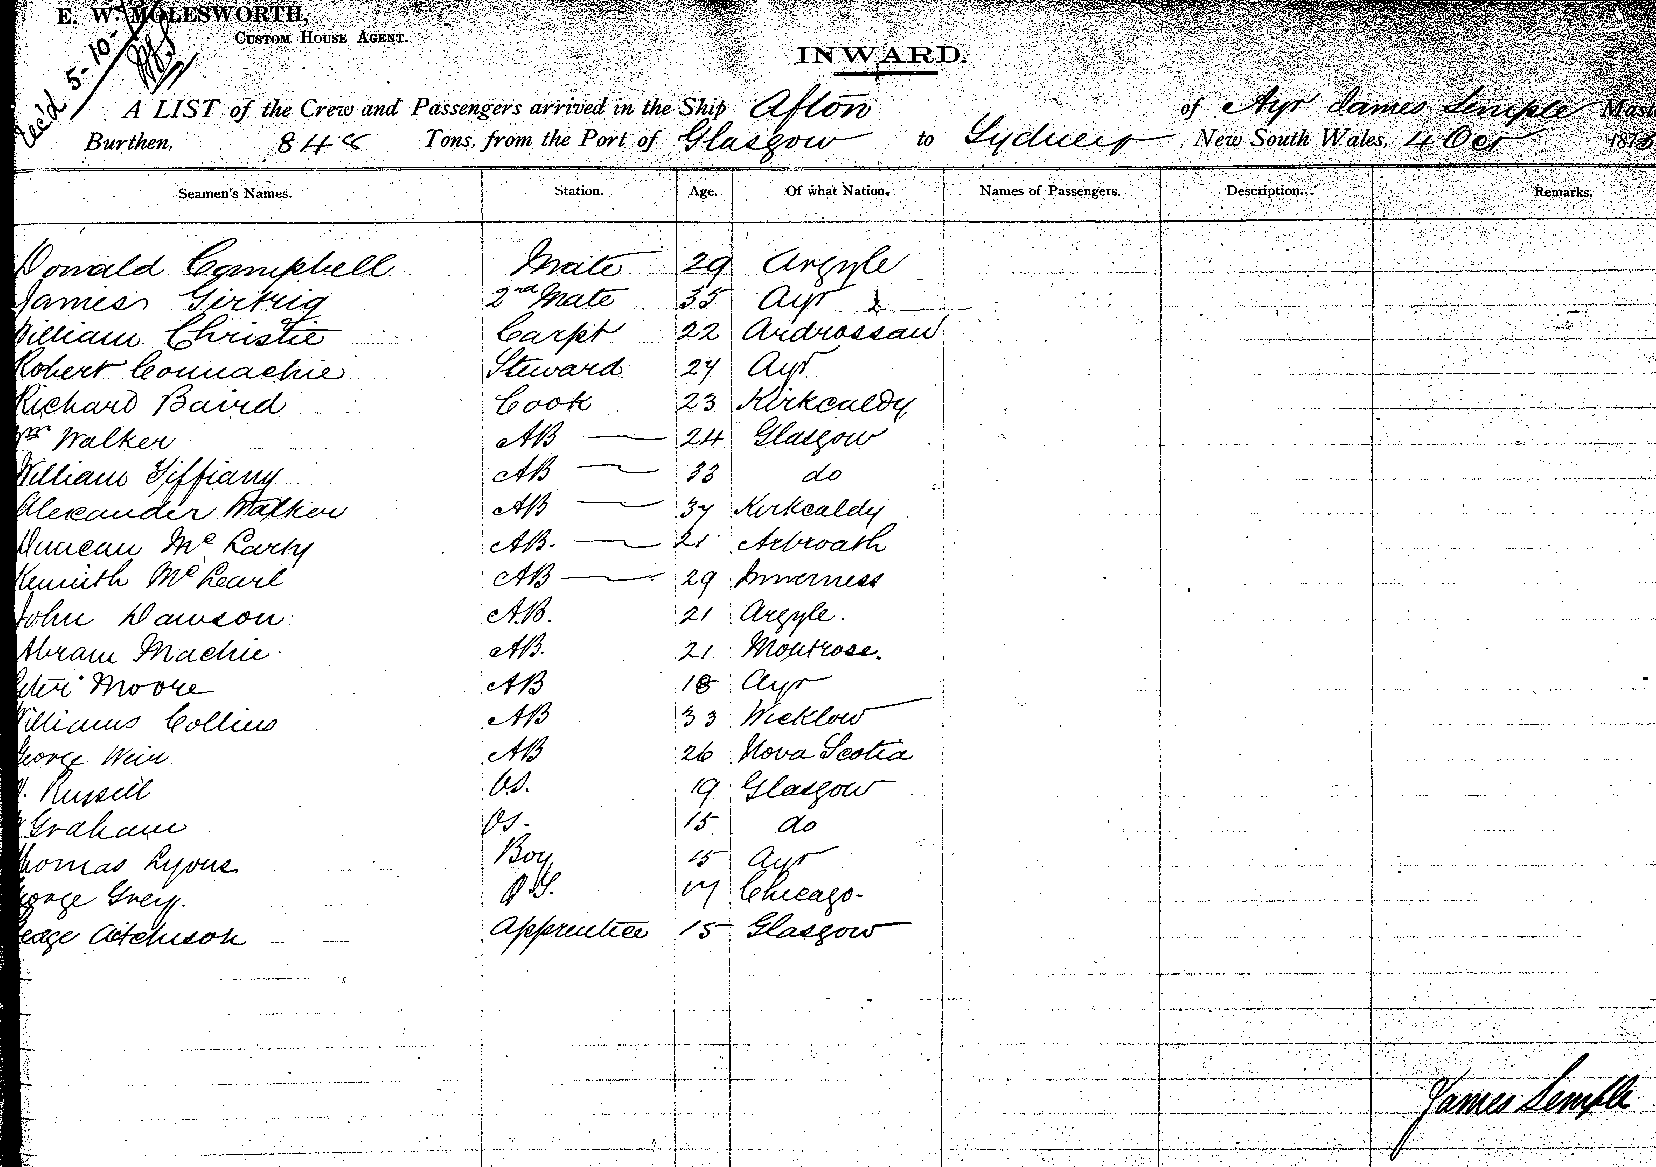 E. W. MOLESWORTH,
CUSTOM HOUSE AGENT.
Rec'd 5-10-
INWARD.
A LIST of the Crew and Passengers arrived in the Ship Afton of Ayr James Semple Mast
Burthen, 848 Tons, from the Port of Glasgow to Sydney New South Wales, 4 Oct 187
Seamen's Names. Station. Age. Of what Nation. Names of Passengers. Description. Remarks.
Donald Campbell Mate 29 Argyle
James Girtrig 2nd Mate 35 Ayr
William Christie Carpt 22 Ardrossan
Robert Connachie Steward 27 Ayr
Richard Baird Cook 23 Kirkcaldy
Wm Walker AB 24 Glasgow
William Tiffiany AB 33 do
Alexander Walker AB 37 Kirkcaldy
Duncan Mc Larty AB. 21 Arbroath
Kennith Mc Learl AB 29 Inverness
John Dawson A.B. 21 Argyle.
Abram Machie AB. 21 Montrose.
Peter Moore AB 18 Ayr
Williams Collins AB 33 Wicklow
George Weir AB 26 Nova Scotia
Russell O.S. 19 Glasgow
Graham OS. 15 do
Thomas Lyons Boy 15 Ayr
George Grey. O.S. 17 Chicago.
George Aitchison Apprentice 15 Glasgow
James Semple